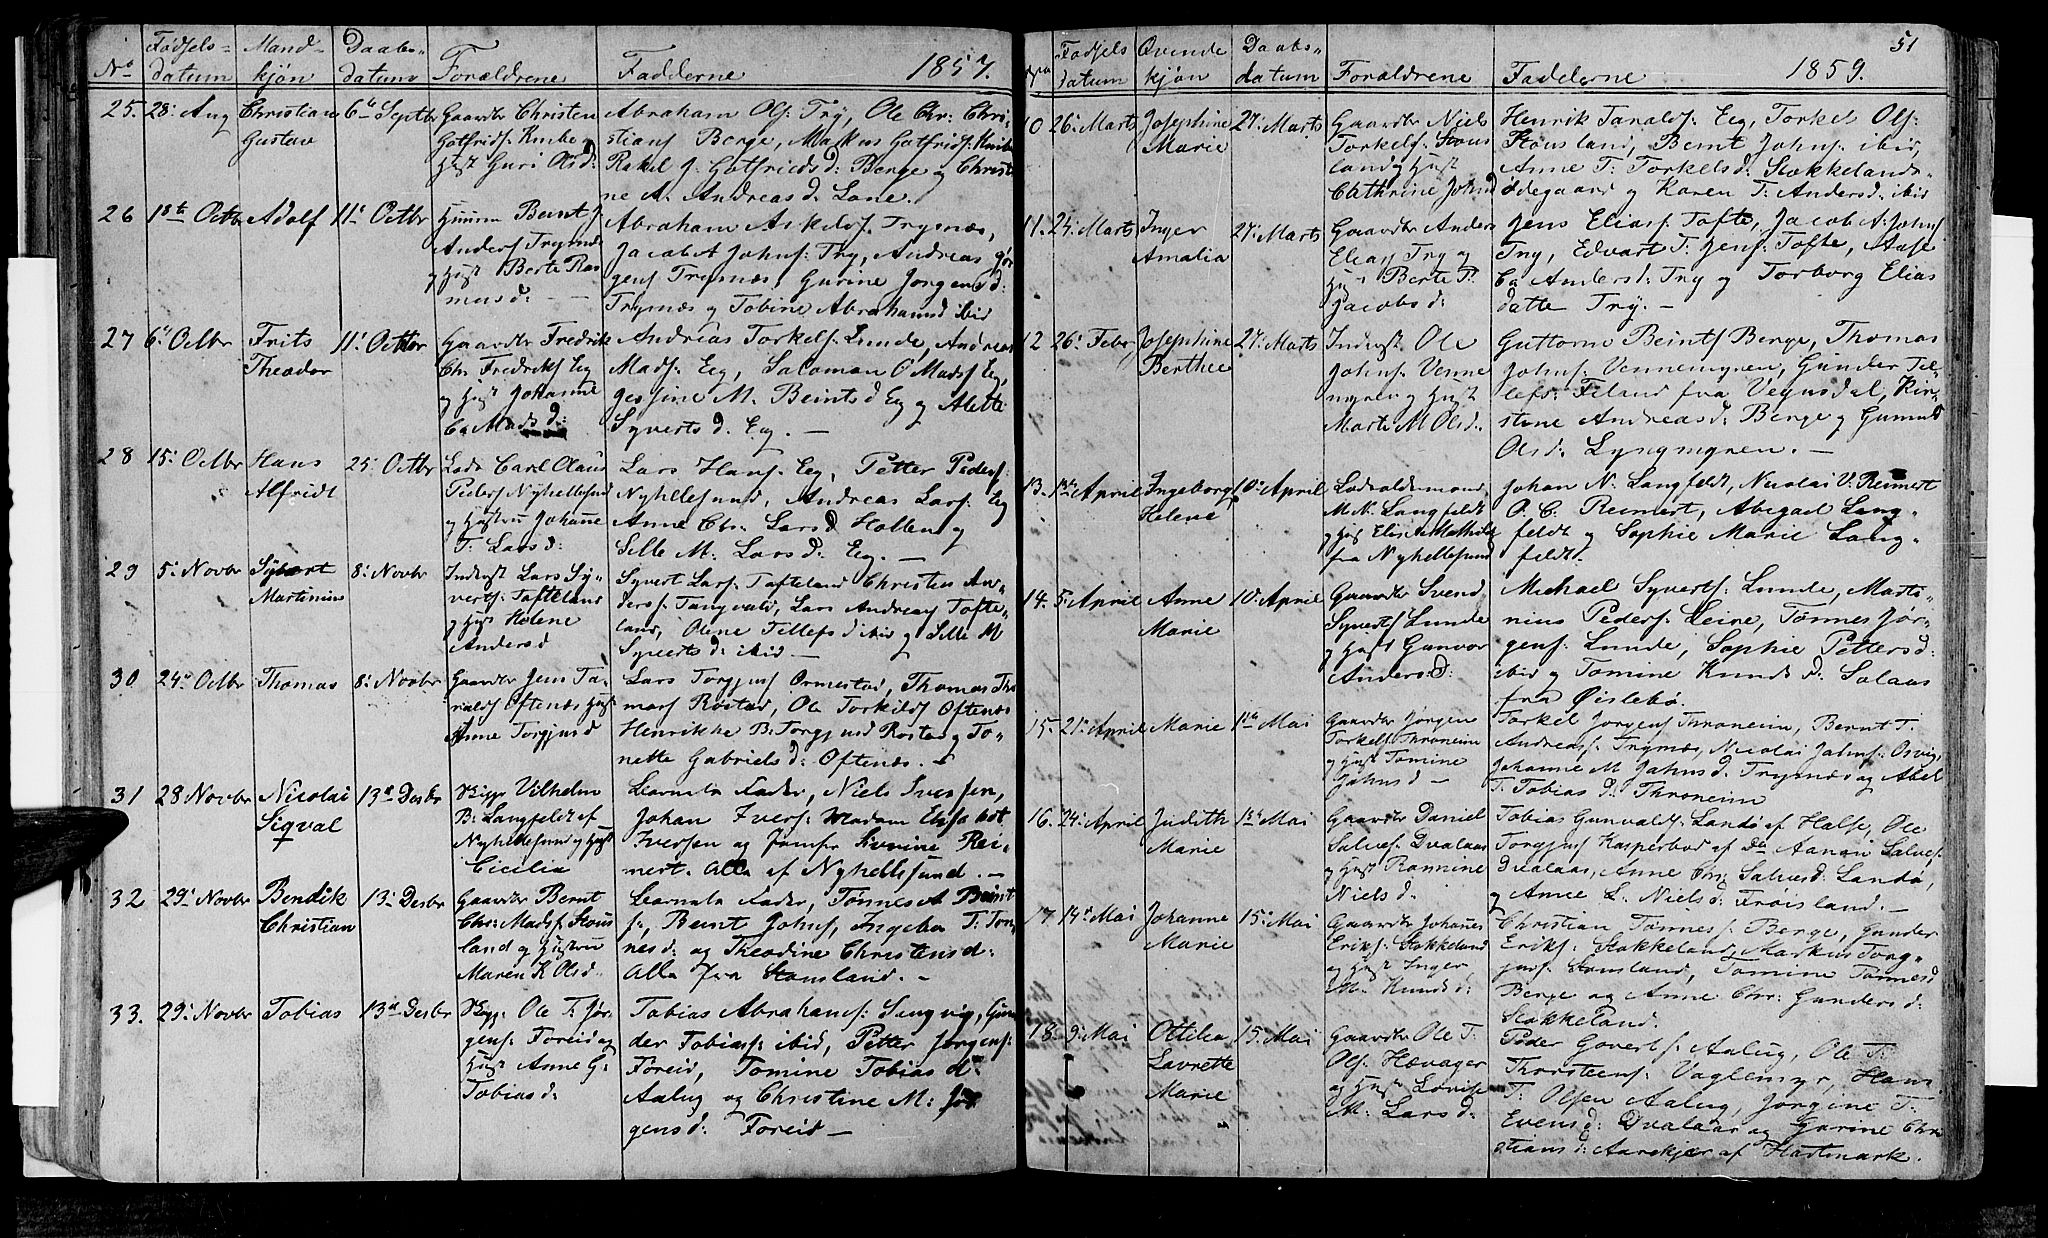 No Fødsels= datum Mandkjøn Daabs= datum Forældrene Fadderne 1857.
25. 28. Aug Christian Gustav 6te Septbr
Gaardbr Christen
Gotfrids. Knibe
og Hust Guri Olsd:
Abraham Ols. Try, Ole Chr. Chri-
stians Berge, Markus Gotfrids. Knibe
Rakel J. Gotfrieds d: Berge og Christi
ne A. Andreas d. Lone.
26 1ste Octbr Adolf 11. Octbr
Huusm Beint
Anders Trysnæs
og Hust Berte Ras
mus d:
Abraham Askelds. Trysnæs,
Jacob A Johns. Try, Andreas Jør
gens Trysnæs, Gurine Jorgens d:
Trysnæs og Tobine Abrahamsd ibid
27 6. Octbr Frits Theodor 11. Octbr
Gaardbr Fredrik
Chr. Fredriks Eeg
og Hust Johanne
Ca Mads d:
Andreas Torkels. Lunde, Andreas
Mads. Eeg, Salomon O Mads Eeg,
Jessine M. Beints d Eeg og Alette
Syverts d. Eeg.
28 15. Octbr Hans Alfridt 25. Octbr
Lods Carl Olaus
Peders Nyhellesund
og Hustru Johanne
T. Lars d:
Lars Hans. Eeg, Petter Peders.
Nyhellesund, Andreas Lars. Eeg
Anne Chr. Lars d Hollen og
Sille M. Lars d. Eeg.
29 5. Novbr Syvert Martinius 8. Novbr
Inderst Lars Sy-
verts. Tofteland
og Hust Helene
Anders d
Syvert Lars. Tofteland Christen An-
ders. Tangvald, Lars Andreas Tofte-
land, Olene Tellefs d ibid og Sille M
Syverts d: ibid
30 24. Octbr Thomas 8. Novbr
Gaardbr Jens Ta-
ralds Oftenæs Hust
Anne Torgjus d
Lars Torgjus Ormestad, Thomas Tho
mas Rostad, Ole Torkilds Oftenæs
Henrikke B. Torgjusd Rostad og To-
nette Gabriels d: Oftenæs.
31 28 Novbr Nicolai Sigval 13de Desbr
Skipp Vilhelm
B. Langfeldt af
Nyhellesund og Hust
Cicilia
Barnets Fader, Niels Svensen,
Johan Ivers. Madam Elisabet
Iversen og Jomfr Severine Rei-
mert. Alle af Nyhellesund.
32 29. Novbr Bendik Christian 13. Desbr
Gaardbr Bernt
Chr. Mads. Stous
land og Hustru
Maren K Ols d.
Barnets Fader, Tønnes A Beint
s., Bernt Johns, Ingebor T. Tøn
nes d: og Theodine Christens d:
Alle fra Stousland.
33. 29. Novbr Tobias 13de Desbr
Skipp. Ole T. Jør
gens. Foreid og
Hust Anne G.
Tobias d.
Tobias Abrahams. Sangvig, Gun
der Tobiass ibid, Petter Jørgens.
Foreid, Tomine Tobias d.
Aalug og Christine M. Jør
gens d: Foreid
51
Fødsels datum Qvindekjøn Daabs= datum Forældrene Fadderne 1859.
10 26. Marts Josephine Marie 27. Marts
Gaardbr Niels
Torkels. Stous
land og Hust
Cathrine Johns d
Henrik Taralds. Eeg, Torkel Ols.
Stousland, Bernt Johns. ibid,
Anne T. Torkels d: Stokkelands-
ødegaard og Karen T. Anders d. ibid
11. 24. Marts Inger Amalia 27. Marts
Gaardbr Anders
Elias Try og
Hust Berte T.
Jacobs d:
Jens Elias. Tofte, Jacob A. Johns
Try, Edvart T. Jens. Tofte, Aase
Ca Anders d: Try og Torborg Elias
datte Try.
12 26. Febr Josephine Berthee 27. Marts
Inderst Ole
Johns. Venne
myren og Hust
Marte M Ols d.
Guttorm Beints Berge, Thomas
Johns. Vennemyren, Gunder Tel-
lefs. Filand fra Vegusdal, Kir-
stene Andreas d. Berge og Gunnild
Ols d. Lyngmyren.
13. 13de April Ingeborg Helene 10. April
Lodsoldermand
M. N. Langfeldt
og Hust Elise Mathilde
fra Nyhellesund
Johan N. Langfeldt, Nicolai V. Reimert
O. C. Reimert, Abigael Lang-
feldt og Sophie Marie Lang-
feldt.
14. 5. April Anne Marie 10. April
Gaardbr Svend
Syverts Lunde
og Hust Gunvor
Anders d.
Michael Syverts. Lunde, Marti-
nius Peders. Leire, Tønnes Jør-
gens. Lunde, Sophie Petters d:
ibid og Tomine Knuds d. Solaas
fra Øislebø.
15. 21. April Marie 1ste Mai
Gaardbr Jørgen
Torkels. Throneim
og Hust Tomine
Jahns d:
Torkel Jorgens Throneim, Bernt T.
Andreas. Trysnæs, Nicolai Jahns. Osvig,
Johanne M Jahns d. Trysnæs og Abel
T. Tobias d: Throneim
16. 24. April Judith Marie 1ste Mai
Gaardbr Daniel
Salves. Dvalaas
og Hust Ramine
Niels d.
Tobias Gunvalds. Landø af Halse, Ole
Torgjus Kasperbod af Do Aanon Salves.
Dvalaas, Anne Chr. Salves d: Landø,
og Anne L. Niels d. Frøisland.
17. 14. Mai Johanne Marie 15. Mai
Gaardbr Johanes
Eriks. Stokkeland
og Hust Inger
M. Knuds d:
Christian Tønnes. Berge, Gunder
Eriks. Stokkeland, Markus Torg-
jus. Stousland, Tomine Tønnes d
Berge og Anne Chr. Gunders d:
Stokkeland.
18. 9. Mai Ottilea Lavrette Marie 15. Mai
Gaardbr Ole T.
Ols. Hævager
og Hust Lovise
M. Lars d.
Peder Goverts. Aalug, Ole T.
Thorsteens. Vaglemyr, Hans
T. Olsen Aalug, Jørgine T.
Evens d: Dvalaas og Gurine Chri
stians d: Aarekjær af Hartmark.